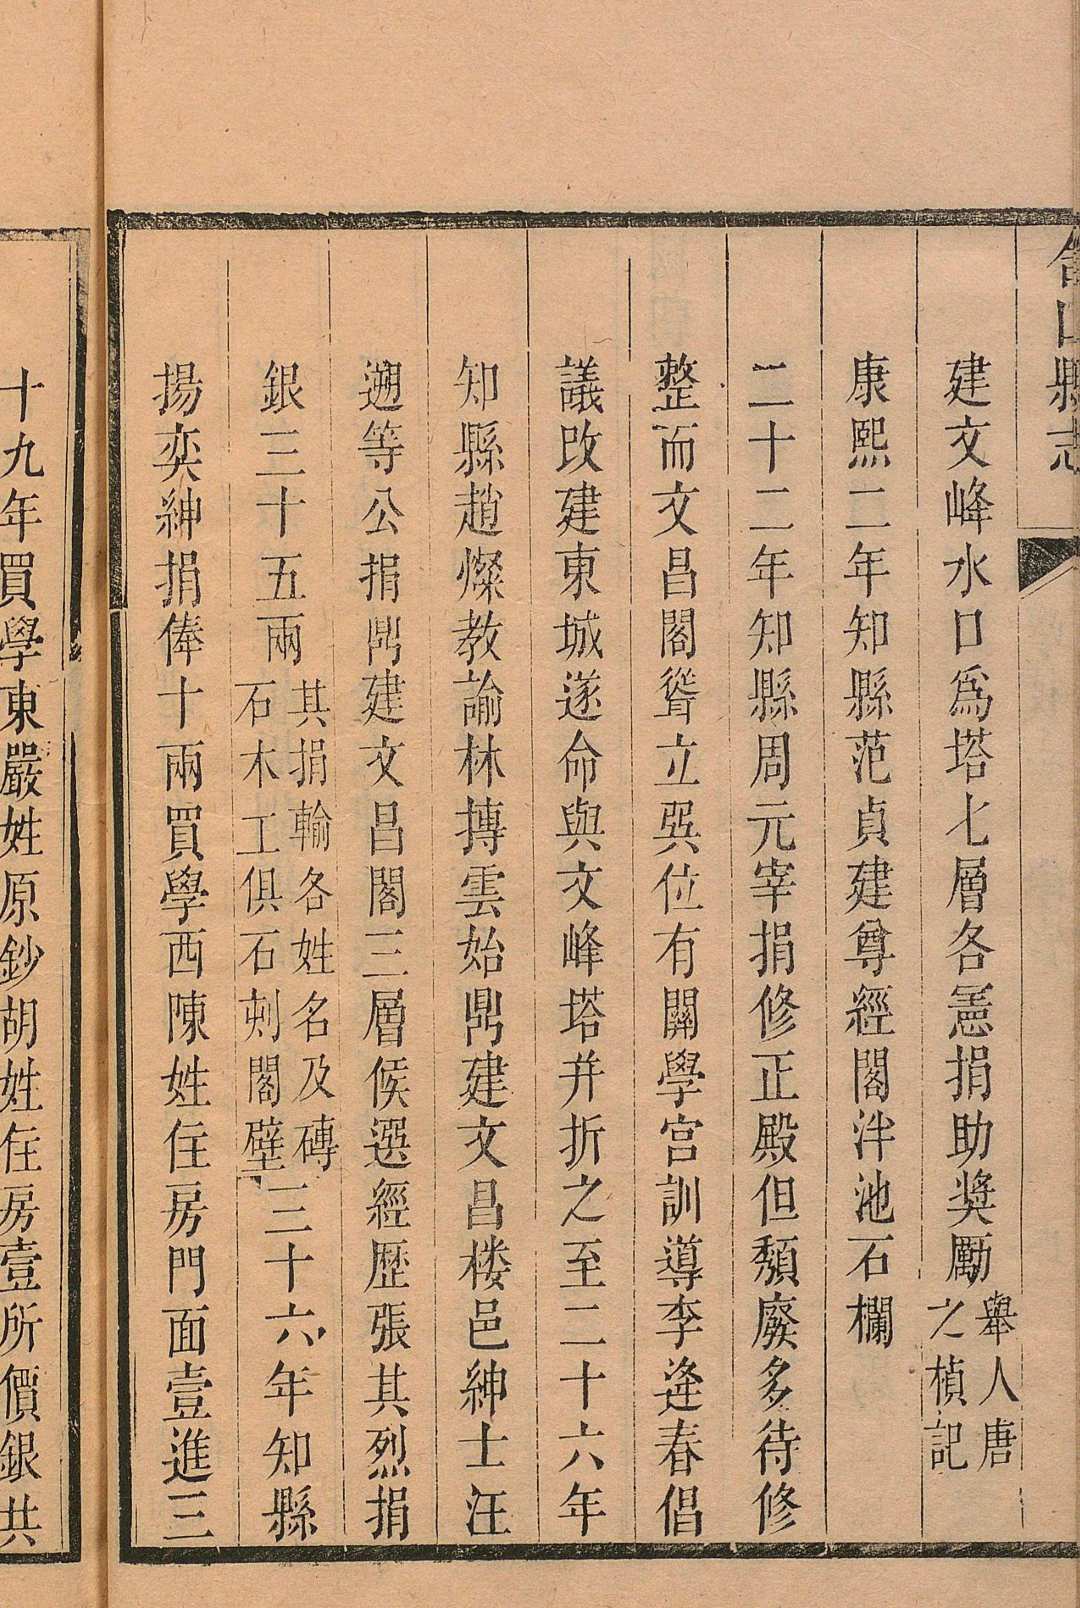 含山縣志
建文峰水口爲塔七層各憲捐助奬勵舉人唐之楨記
康熙二年知縣范貞建尊經閣泮池石欄
二十二年知縣周元宰捐修正殿但頽廢多待修
整而文昌閣聳立巽位有關學宮訓導李逄春倡
議改建東城遂命與文峰塔并折之至二十六年
知縣趙燦教諭林摶雲始鼎建文昌楼邑紳士汪
遡等公捐鼎建文昌閣三層候選經歷張其烈捐
銀三十五兩其捐輸各姓名及磚石木工俱石刻閣壁三十六年知縣
揚奕紳捐俸十兩買學西陳姓住房門面壹進三
十九年買學東嚴姓原鈔胡姓住房壹所價銀共